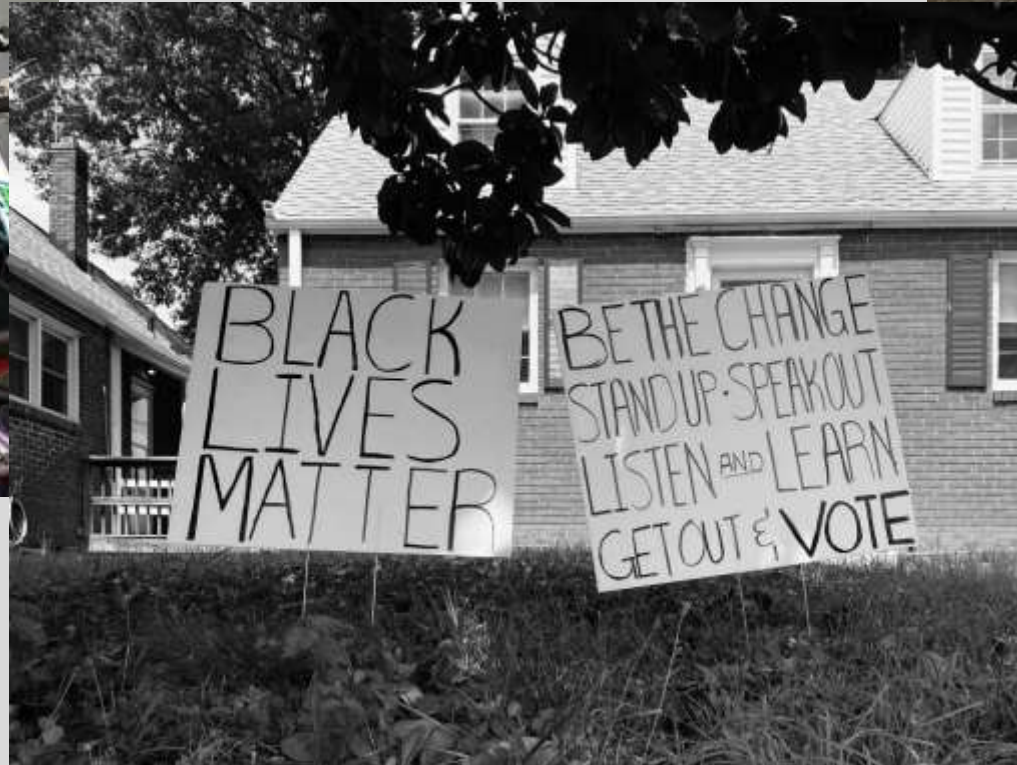 BLACK
LIVES
MATTER
BE THE CHANGE
STAND UP · SPEAK OUT
LISTEN AND LEARN
GET OUT & VOTE